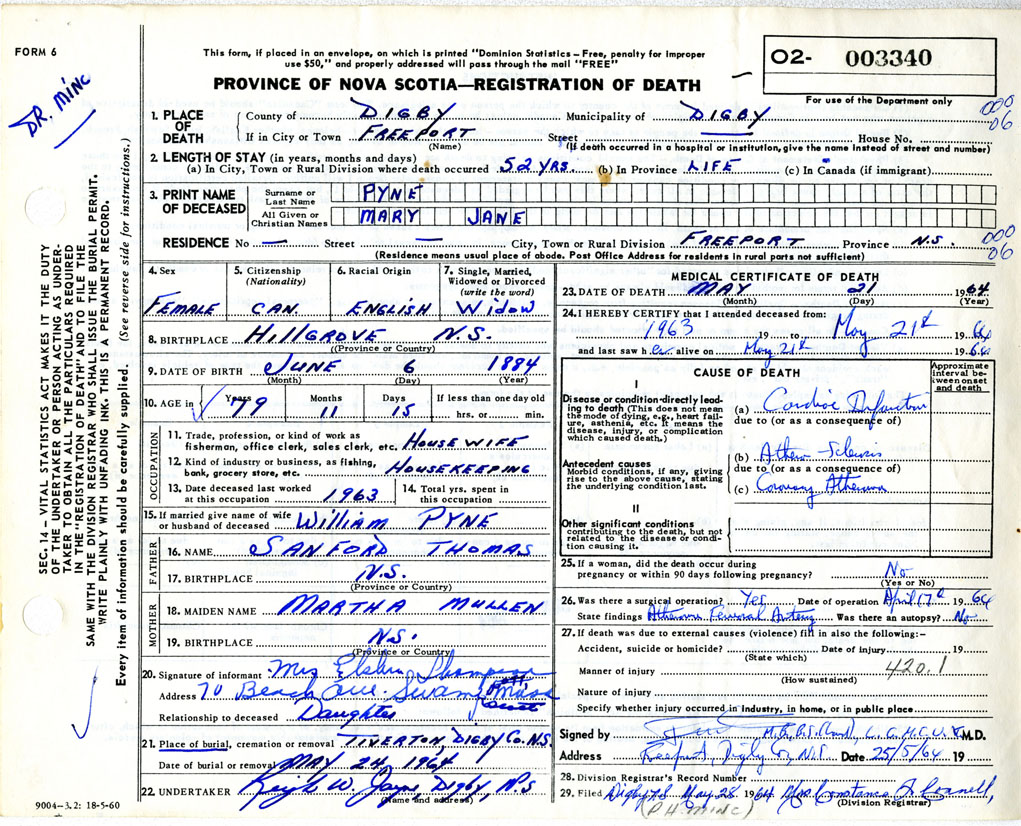 FORM 6
DR. MINC
This form, if placed in an envelope, on which is printed "Dominion Statistics – Free, penalty for improper
use $50," and properly addressed will pass through the mail "FREE"
PROVINCE OF NOVA SCOTIA—REGISTRATION OF DEATH
O2- 003340
For use of the Department only
000
06
1. PLACE OF DEATH
County of DIGBY Municipality of DIGBY
If in City or Town FREEPORT Street House No.
(Name) (If death occurred in a hospital or institution, give the name instead of street and number)
2. LENGTH OF STAY (in years, months and days)
(a) In City, Town or Rural Division where death occurred 52 YRS. (b) In Province LIFE (c) In Canada (if immigrant)
3. PRINT NAME OF DECEASED
Surname or Last Name PYNE
All Given or Christian Names MARY JANE
RESIDENCE No — Street — City, Town or Rural Division FREEPORT Province N.S.
(Residence means usual place of abode. Post Office Address for residents in rural parts not sufficient)
000
06
4. Sex FEMALE
5. Citizenship (Nationality) CAN.
6. Racial Origin ENGLISH
7. Single, Married, Widowed or Divorced (write the word) WIDOW
8. BIRTHPLACE HILLGROVE N.S.
(Province or Country)
9. DATE OF BIRTH JUNE 6 1884
(Month) (Day) (Year)
10. AGE in Years 79 Months 11 Days 15 If less than one day old
hrs. or min.
OCCUPATION
11. Trade, profession, or kind of work as
fisherman, office clerk, sales clerk, etc. HOUSEWIFE
12. Kind of industry or business, as fishing,
bank, grocery store, etc. HOUSEKEEPING
13. Date deceased last worked
at this occupation 1963
14. Total yrs. spent in
this occupation
15. If married give name of wife
or husband of deceased WILLIAM PYNE
FATHER
16. NAME SANFORD THOMAS
17. BIRTHPLACE N.S.
(Province or Country)
MOTHER
18. MAIDEN NAME MARTHA MULLEN
19. BIRTHPLACE N.S.
(Province or Country)
20. Signature of informant Mrs
Address 70 Beach Ave. Mass
Relationship to deceased Daughter
21. Place of burial, cremation or removal TIVERTON, DIGBY CO. N.S.
Date of burial or removal MAY 24, 1964
22. UNDERTAKER W. Jayne, DIGBY, N.S
(Name and address)
9004–3.2: 18-5-60
MEDICAL CERTIFICATE OF DEATH
23. DATE OF DEATH MAY 21 1964
(Month) (Day) (Year)
24. I HEREBY CERTIFY that I attended deceased from:
1963 19 to May 21st 1964
and last saw her alive on May 21st 1964
CAUSE OF DEATH
Approximate interval between onset and death
I
Disease or condition directly leading to death (This does not mean the mode of dying, e.g., heart failure, asthenia, etc. It means the disease, injury, or complication which caused death.)
(a) Cardiac Infarction
due to (or as a consequence of)
Antecedent causes
Morbid conditions, if any, giving rise to the above cause, stating the underlying condition last.
(b) Athero Sclerosis
due to (or as a consequence of)
(c) Coronary Atheroma
II
Other significant conditions
contributing to the death, but not related to the disease or condition causing it.
25. If a woman, did the death occur during
pregnancy or within 90 days following pregnancy? No
(Yes or No)
26. Was there a surgical operation? Yes Date of operation April 17th 1964
State findings Atheroma Femoral Artery Was there an autopsy? No
27. If death was due to external causes (violence) fill in also the following:–
Accident, suicide or homicide? Date of injury 19
(State which)
Manner of injury 420.1
(How sustained)
Nature of injury
Specify whether injury occurred in industry, in home, or in public place
Signed by M.B., B.S. (Lond), M.D.
Address Freeport, Digby Co, N.S. Date 25/5/64 19
28. Division Registrar's Record Number
29. Filed Digby N.S. May 28 1964 Mrs. Constance
(Division Registrar)
(P.H. MINC)
SEC. 14 – VITAL STATISTICS ACT MAKES IT THE DUTY
OF THE UNDERTAKER OR PERSON ACTING AS UNDERTAKER
TO OBTAIN ALL THE PARTICULARS REQUIRED
IN THE "REGISTRATION OF DEATH" AND TO FILE THE
SAME WITH THE DIVISION REGISTRAR WHO SHALL ISSUE THE BURIAL PERMIT.
WRITE PLAINLY WITH UNFADING INK. THIS IS A PERMANENT RECORD.
Every item of information should be carefully supplied. (See reverse side for instructions.)